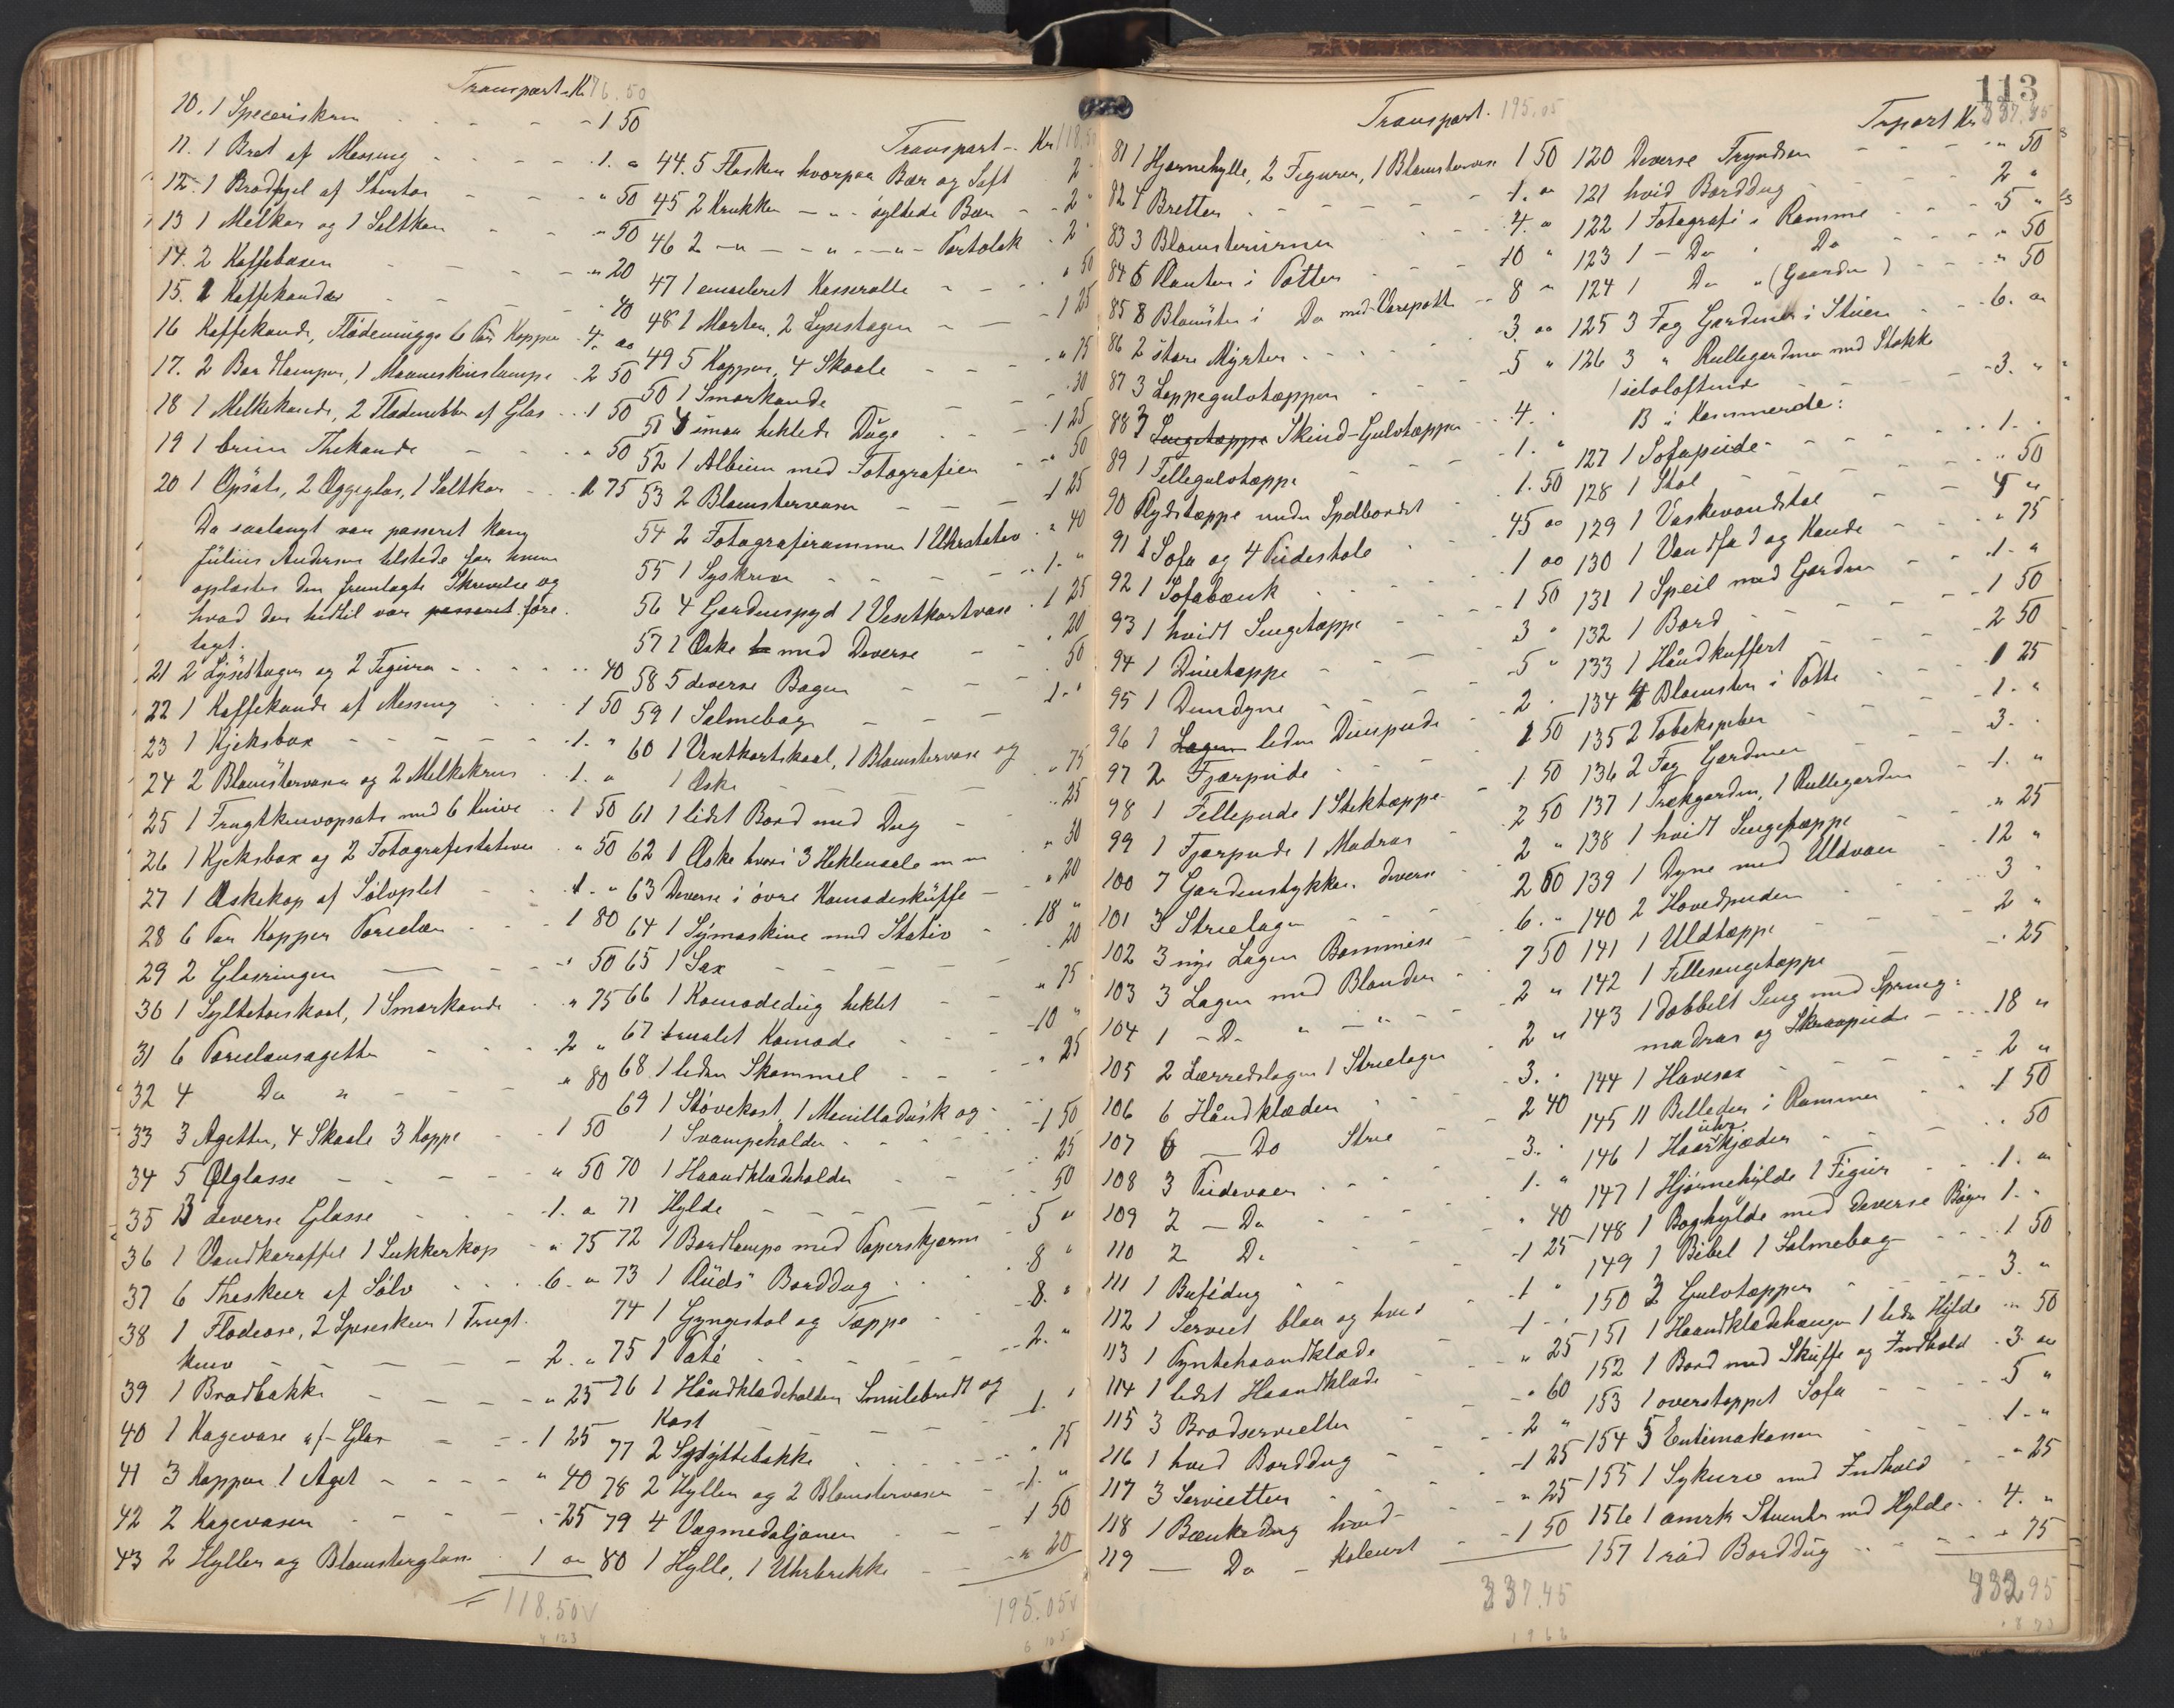 Transport Kr 76.50
10. 1 Speceriskrin - - - 1 50
11. 1 Bret af Messing - - - 1. "
12. 1 Brødfjel af Stentøi - - - " 50
13 1 Melkar og 1 Saltkar - - " 50
14. 2 Kaffebøsser - - - " 20
15. 2 Kaffekander - - - " 40
16 Kaffekande, Flødemugge 6 Par Kopper 4. oo
17. 2 Bordlamper, 1 Maaneskinslampe 2 50
18 1 Melkekande, 2 Flødenebber af Glas 1 50
19 1 brun Thekande - - " 50
20 1 Opsats, 2 Æggeglas, 1 Saltkar - 1 75
Da saalangt var passeret kom
Julius Andersen tilstede for hvem
oplæstes den fremlagte Skrivelse og
hvad der hidtil var passeret fore
taget.
21 2 Lysestager og 2 Figurer - - - 40
22 1 Kaffekande af Messing - - 1 50
23 1 Kjeksbox - - - 1. "
24 2 Blomstervaser og 2 Melkekrus - 1. "
25 1 Frugtknivopsats med 6 Knive - 1 50
26 1 Kjeksbox og 2 Fotografistativer " 50
27 1 Askekop af Sølvplet - - 1. "
28 6 Par Kopper Porcelæn - - 1 80
29 2 Glasringer - - - " 50
30 1 Syltetøiskaal, 1 Smørkande - " 75
31 6 Porcelænsagetter - - - 2 "
32 4 Do " - - " 80
33 3 Agetter, 4 Skaale 3 Koppe - 1 50
34 5 Ølglasse - - - " 50
35 13 deverse Glasse - - - 1. "
36 1 Vandkaraffel 1 Sukkerkop - " 75
37 6 Theskeer af Sølv - - 6. "
38 1 Flødeøse, 2 Spiseskeer 1 Frugt-
kniv - - - 2. "
39 1 Brødbakke - - - " 25
40 1 Kagevase af Glas - - 1 25
41 3 Kopper 1 Aget - - - " 40
42 2 Kagevaser - - - 25
43 2 Hyller og Blomsterglas - 1 "
118.50
Transport - Kr 118.50
44. 5 Flasker hvorpaa Bær og Saft 2 "
45 2 Krukker - " - syltede Bær - 2 "
46 2 - " - - " - - " - Portolak 2 "
47 1 emaileret Kasserolle - - " 50
48 1 Morter, 2 Lysestager - - 1 25
49 5 Kopper, 4 Skaale - - " 75
50 1 Smørkande - - 30
51 4 smaa heklede Duge - - 1 25
52 1 Album med Fotografier - " 50
53 2 Blomstervaser - - - 1 25
54 2 Fotografirammer 1 Uhrstativ " 40
55 1 Syskrin - - - 1. "
56 4 Gardinspyd 1 Visitkortvase 1 25
57 1 Æske med Deverse - - " 20
58 5 deverse Bøger - - 50
59 1 Salmebog - - - 1 "
60 1 Visitkortskaal, 1 Blomstervase og
1 Æske - - " 75
61 1 lidet Bord med Dug - - " 25
62 1 Æske hvori 3 Heklenaale m m " 30
63 Deverse i øvre Komodeskuffe - " 20
64 1 Symaskine med Stativ - 18 "
65 1 Sax - - - 20
66 1 Komodedug heklet - - " 75
67 1 malet Komode - - 10 "
68 1 liden Skammel - - " 25
69 1 Støvekost, 1 Manilladusk og
1 Svampeholder - - 1 50
70 1 Haandklædeholder - - 25
71 Hylde - - - 50
72 1 Bordlampe med Papirskjærm 5 "
73 1 Plüds Borddug - - 8 "
74 1 Gyngestol og Tæppe - 8. "
75 1 Paté - - - 2. "
76 1 Håndklædeholder Smulebrett og
Kost - - 1. "
77 2 Syskyttebakke - - " 75
78 2 Hyller og 2 Blomstervaser - 1. "
79 4 Vægmedaljoner - - 1 50
80 1 Hylle, 1 Uhrbrikke - - " 20
195.05
Transport. 195.05
81 1 Hjørnehylle, 2 Figurer, 1 Blomstervase 1 50
82 4 Bretter - - - 1. "
83 3 Blomsterurner - - 4. "
84 6 Planter i Potter - - 10 "
85 8 Blomster i Do med Varepotte - 8 "
86 2 store Myrter - - - 3. oo
87 3 Loppegulvtæpper - - 5 "
88 3 Sengetæppe Skind-Gulvtæpper - 4. "
89 1 Fellegulvtæppe - - 1. "
90 Plydstæppe under Spellbordet - 1. 50
91 1 Sofa og 4 Pudestole - - 45 oo
92 1 Sofabænk - - 1 oo
93 1 hvidt Sengetæppe - - 1 50
94 1 Dunetæppe - - 3 "
95 1 Dundyne - - - 5 "
96 1 Lagen liden Dunpude - 2 "
97 2 Fjærpude - - 1 50
98 1 Fellepude 1 Stektæppe - 1 50
99 1 Fjærpude 1 Madras - 2 50
100 7 Gardinstykker, deverse - 2 "
101 3 Strielagen - - 2 50
102 3 nye Lagen Bommise - 6. "
103 3 Lagen med Blonder - 7 50
104 1 - Do " - " - 2 "
105 2 Lærredslagen 1 Strielagen - 2 "
106 6 Håndklæder - - 3. "
107 6 - Do Strie - 2 40
108 3 Pudevaer - - 3. "
109 2 - Do - - 1. "
110 2 Do - - " 40
111 1 Bufédug - - 1 25
112 1 Serviet blaa og hvid - 1 "
113 1 Pyntehaandklæde - 1 "
114 1 lidet Haandklæde - " 25
115 3 Brødservietter - - " 60
116 1 hvid Borddug - - 2 "
117 3 Servietter - - 1 25
118 1 Bænkedug hvid - - " 25
119 - Do - Kolørt - 1 50
337.45
113
Trport Kr 337.45
120 Deverse Fryndser - - " 50
121 hvid Borddug - - 2 "
122 1 Fotografi i Ramme - - 5 "
123 1 - Do " Do - - " 50
124 1 Do " (Gaarden) - - " 50
125 3 Fag Gardiner i Stuen - - 6. "
126 3 " Rullegardiner med Stokke
B i Kammerset: - - 3. "
127 1 Sofapude - - - 1. "
128 1 Stol - - - " 50
129 1 Vaskevandstol - - 4 "
130 1 Vandfad og Kande - - " 75
131 1 Speil med Gardin - - 1. "
132 1 Bord - - - 1 50
133 1 Håndkuffert - - 2 50
134 4 Blomster i Potte - - 1 25
135 2 Tobakspiber - - 1. "
136 2 Fag Gardiner - - 3. "
137 1 Trækgardin, 1 Rullegardin - 1. "
138 1 hvidt Sengetæppe - - " 25
139 1 Dyne med Uldvaer - 12 "
140 2 Hovedpuder - - 3 "
141 1 Uldtæppe - - 2 "
142 1 Fellesengetæppe - - 25
143 1 dobbelt Seng med Spring-
madras og Skraapude - - 18 "
144 1 Havesax - - 2 "
145 11 Billeder i Rammer - - 1 50
uhr
146 1 Haarkjæder - - " 50
147 1 Hjørnehylde 1 Figur - - 1. "
148 1 Boghylde med deverse Bøger 1. "
149 1 Bibel 1 Salmebog - - 1 50
150 3 Gulvtæpper - - 3. "
151 1 Haandklædehænger 1 liden Hylde " 50
152 1 Bord med Skuffe og Indhold 3. "
153 1 overstoppet Sofa - - 5 "
154 5 - - 1. "
155 1 Sykurv med Indhold - - 25
156 1 amrk Stueuhr med Hylde - 4. "
157 1 rød Borddug - - - 75
432 95